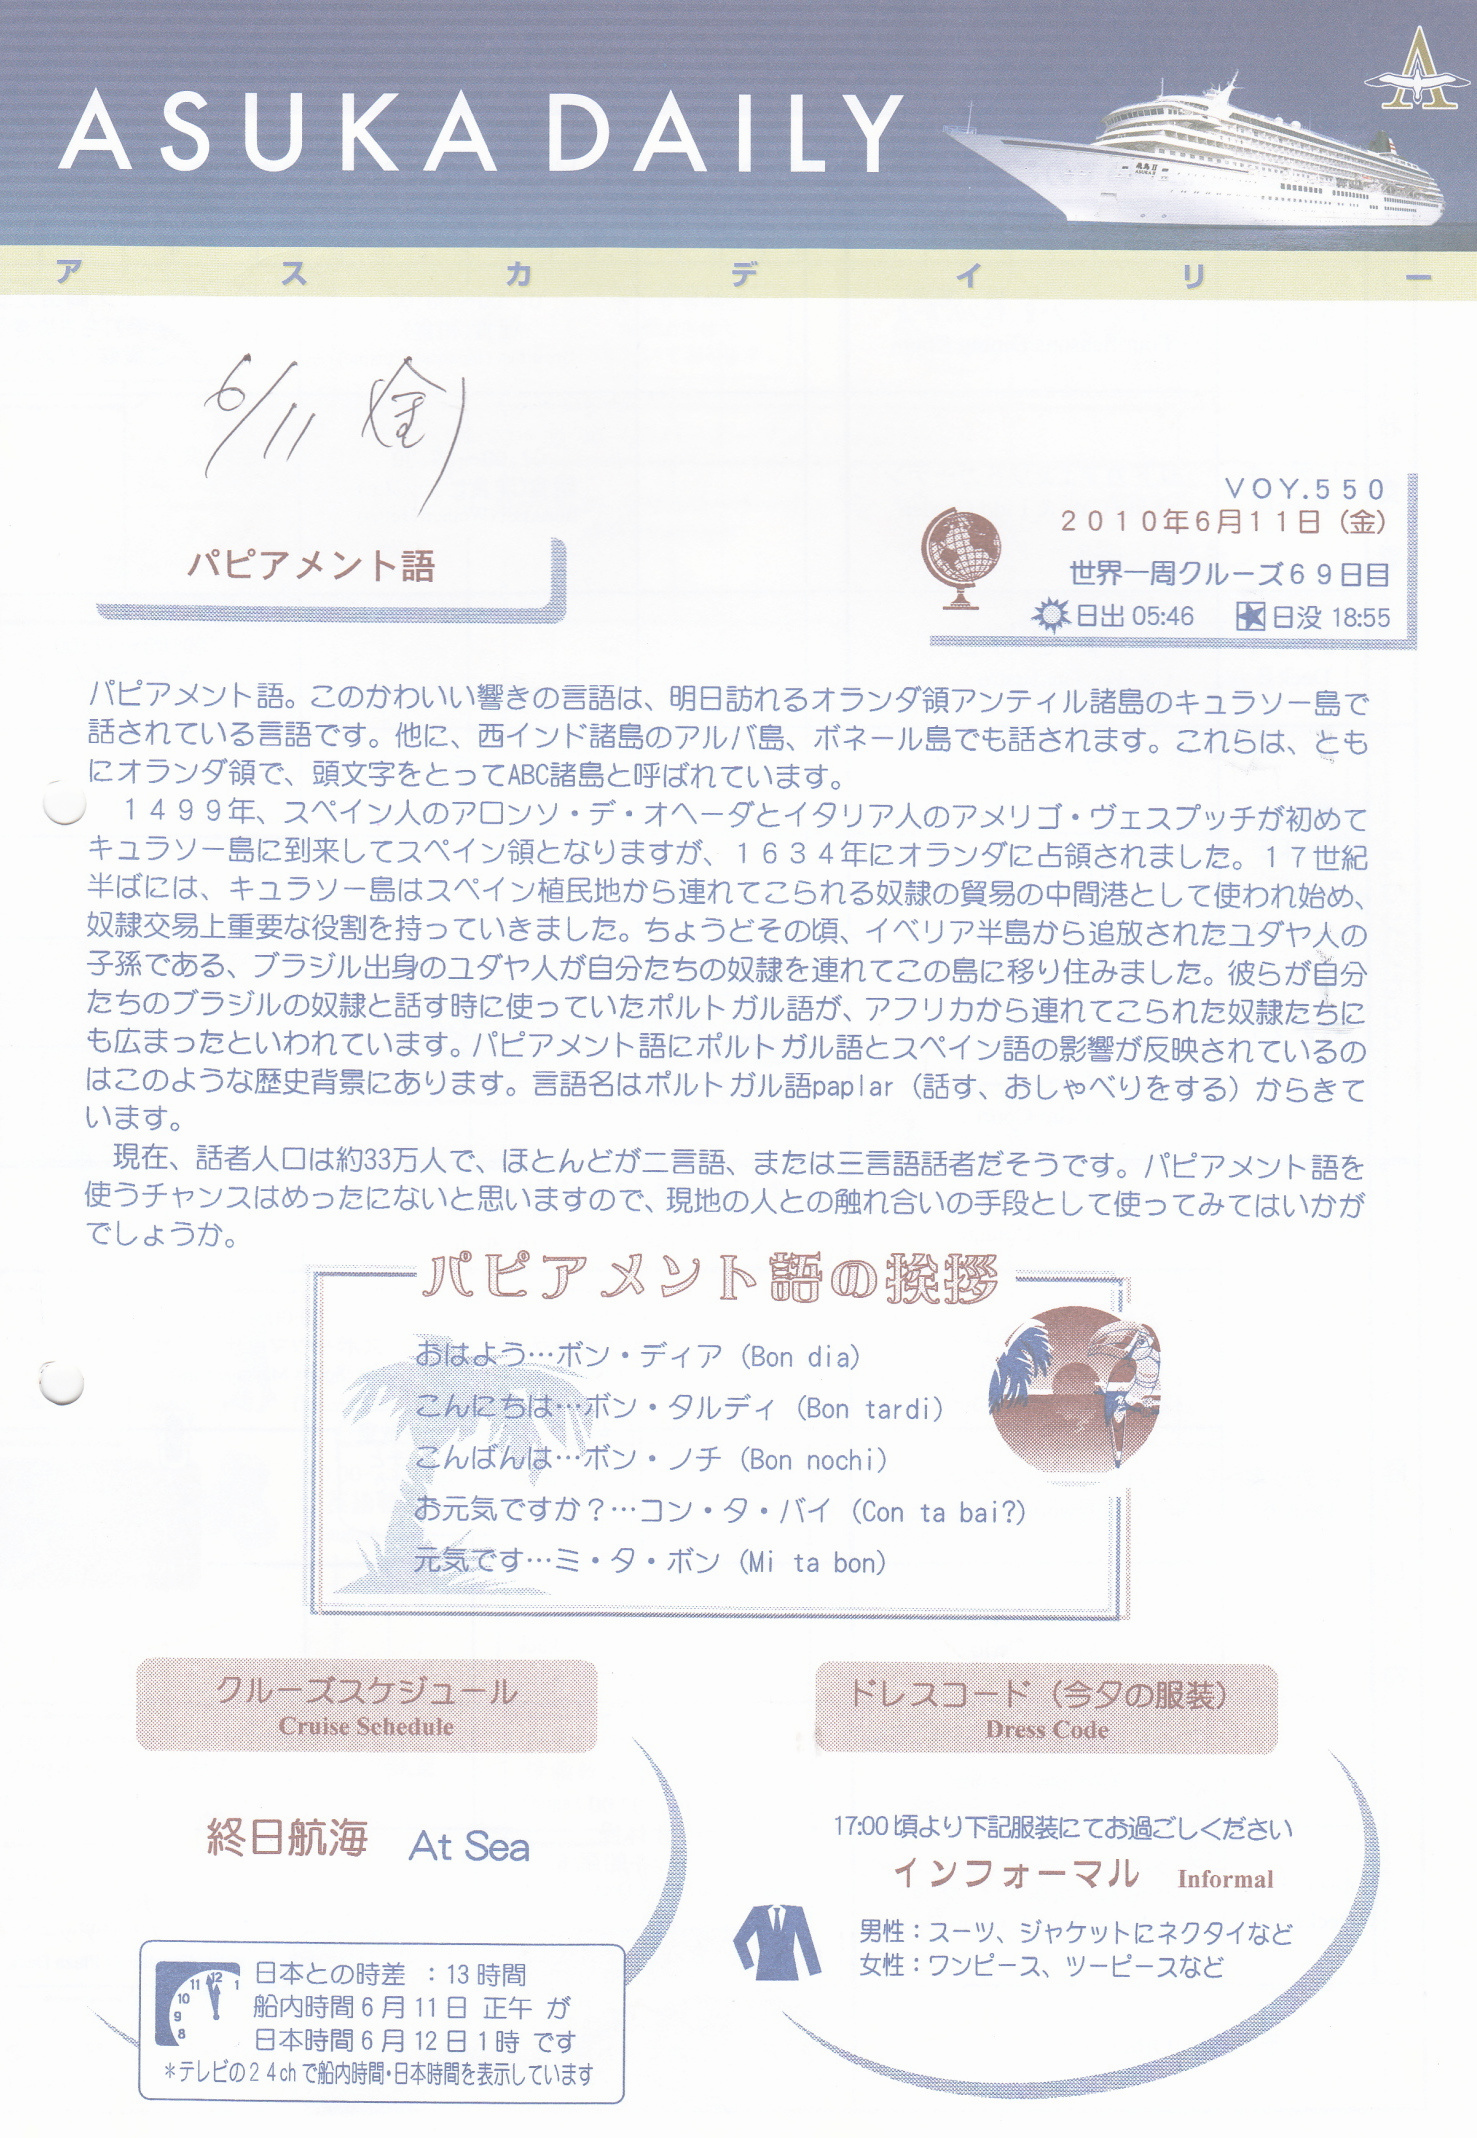 ASUKA DAILY
飛鳥II
ASUKA II
アスカデイリー
6/11 (金)
VOY.550
2010年6月11日（金）
世界一周クルーズ69日目
日出 05:46 日没 18:55
パピアメント語
パピアメント語。このかわいい響きの言語は、明日訪れるオランダ領アンティル諸島のキュラソー島で
話されている言語です。他に、西インド諸島のアルバ島、ボネール島でも話されます。これらは、とも
にオランダ領で、頭文字をとってABC諸島と呼ばれています。
１４９９年、スペイン人のアロンソ・デ・オヘーダとイタリア人のアメリゴ・ヴェスプッチが初めて
キュラソー島に到来してスペイン領となりますが、１６３４年にオランダに占領されました。１７世紀
半ばには、キュラソー島はスペイン植民地から連れてこられる奴隷の貿易の中間港として使われ始め、
奴隷交易上重要な役割を持っていきました。ちょうどその頃、イベリア半島から追放されたユダヤ人の
子孫である、ブラジル出身のユダヤ人が自分たちの奴隷を連れてこの島に移り住みました。彼らが自分
たちのブラジルの奴隷と話す時に使っていたポルトガル語が、アフリカから連れてこられた奴隷たちに
も広まったといわれています。パピアメント語にポルトガル語とスペイン語の影響が反映されているの
はこのような歴史背景にあります。言語名はポルトガル語paplar（話す、おしゃべりをする）からきて
います。
現在、話者人口は約33万人で、ほとんどが二言語、または三言語話者だそうです。パピアメント語を
使うチャンスはめったにないと思いますので、現地の人との触れ合いの手段として使ってみてはいかが
でしょうか。
パピアメント語の挨拶
おはよう…ボン・ディア（Bon dia）
こんにちは…ボン・タルディ（Bon tardi）
こんばんは…ボン・ノチ（Bon nochi）
お元気ですか？…コン・タ・バイ（Con ta bai?）
元気です…ミ・タ・ボン（Mi ta bon）
クルーズスケジュール
Cruise Schedule
終日航海 At Sea
12 1
11
10
9
8
日本との時差 ：13時間
船内時間6月11日 正午 が
日本時間6月12日1時 です
＊テレビの２４chで船内時間・日本時間を表示しています
ドレスコード（今夕の服装）
Dress Code
17:00頃より下記服装にてお過ごしください
インフォーマル Informal
男性：スーツ、ジャケットにネクタイなど
女性：ワンピース、ツーピースなど